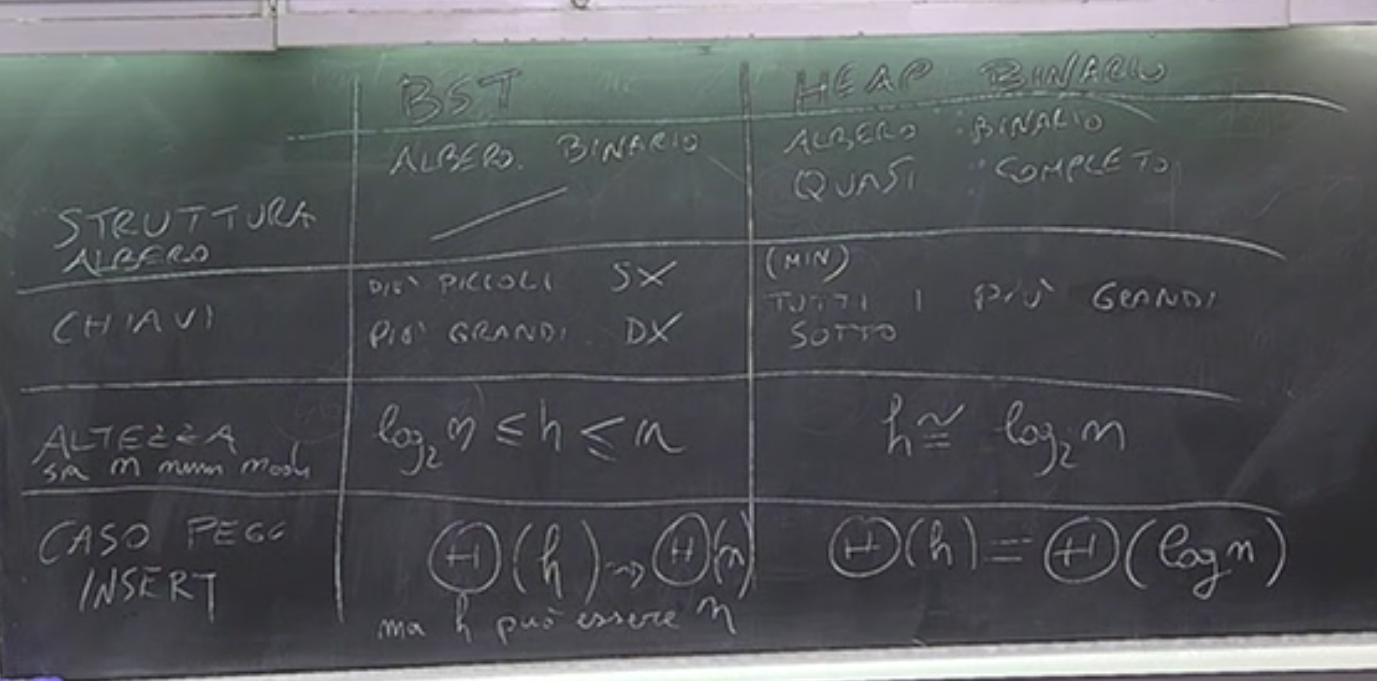 BST HEAP BINARIO
STRUTTURA
ALBERO
ALBERO BINARIO
ALBERO BINARIO
QUASI COMPLETO
CHIAVI
PIÙ PICCOLI SX
PIÙ GRANDI DX
(MIN)
TUTTI I PIÙ GRANDI
SOTTO
ALTEZZA
sia n num nodi
log₂ n ≤ h ≤ n
h ≅ log₂ n
CASO PEGG
INSERT
Θ(h) ⇝ Θ(n)
ma h può essere n
Θ(h) = Θ(log n)